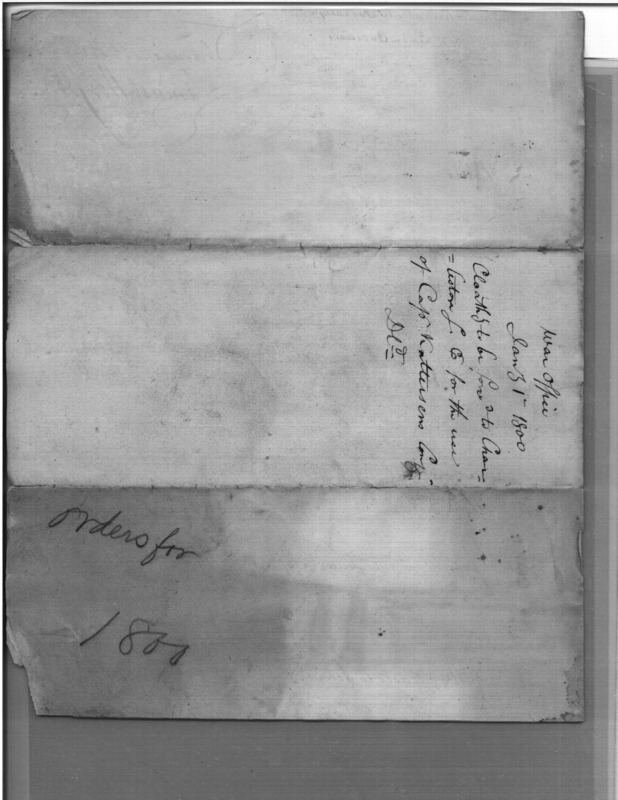 War Office
Jany 1st 1800
Cloathg to be forwd to Char=
=leston S. Co for the use
of Capt Kattersens Compy
Dld
orders for
1800